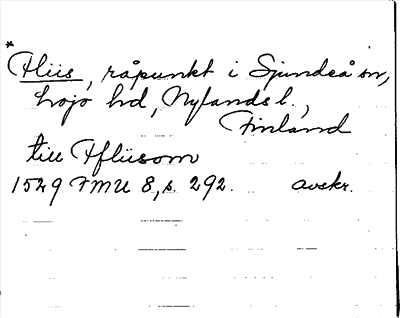 *
Fliis, råpunkt i Sjundeå sn,
Lojo hd, Nylands l.,
Finland
till Ffliisom
1529 FMU 8, s. 292. avskr.